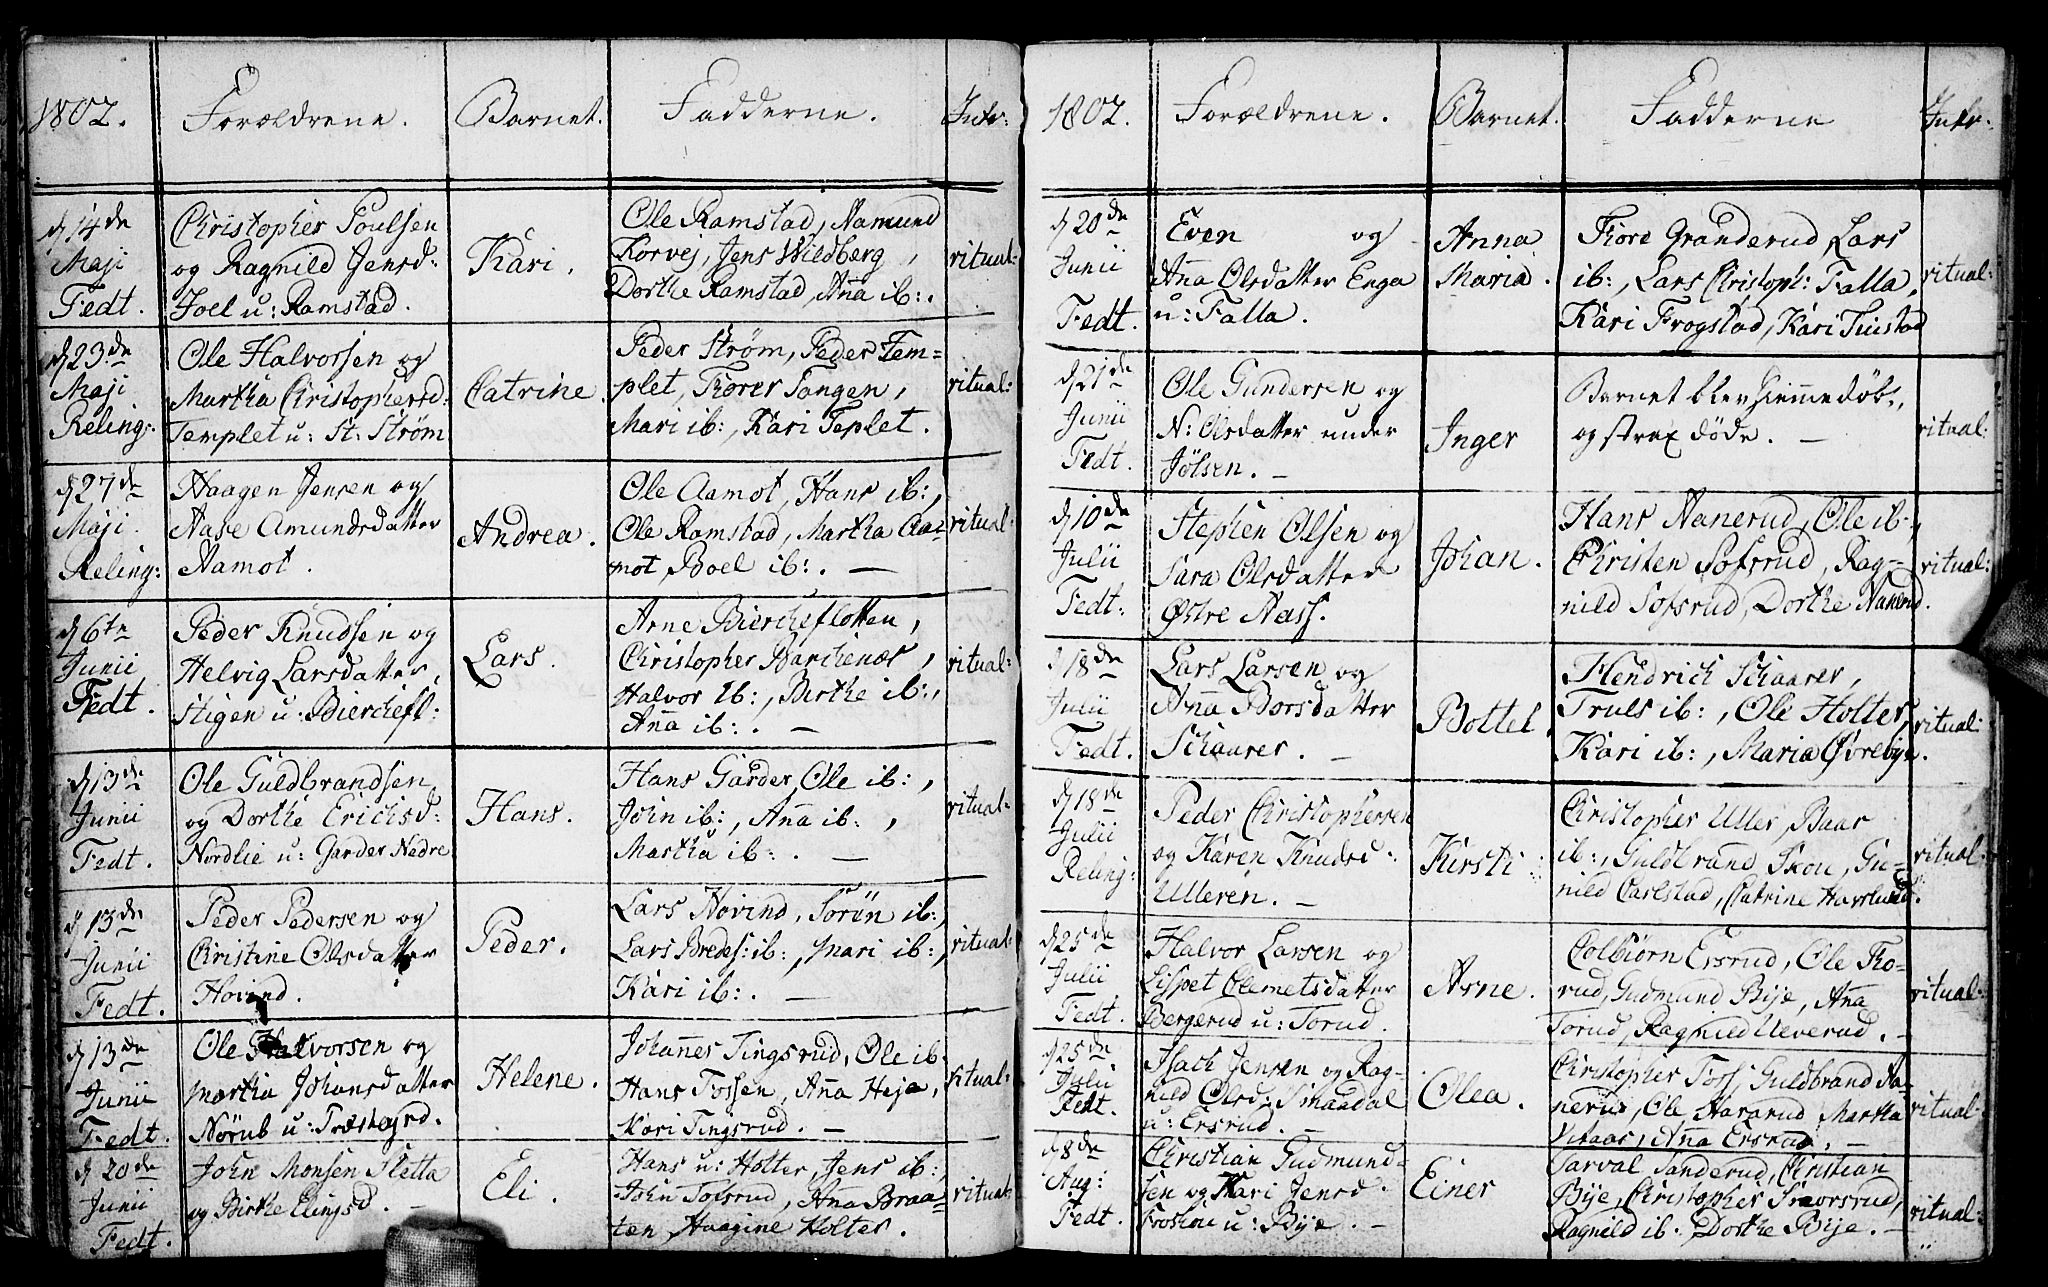 1802.
Forældrene.
Barnet.
Fadderne.
Intr:
d 14de
Maji
Fedt.
Christopher Poulsen
og Ragnild Jensd:
Joel u: Ramstad.
Kari.
Ole Ramstad, Aamund
Korvej, Jens Wildberg,
Dorthe Ramstad, Anna ib:.
ritual:
d 23de
Maji
Reling:
Ole Halvorsen og
Martha Christophersd:
Templet u: St: Strøm
Catrine.
Peder Strøm, Peder Tem=
plet, Torer Tangen,
Mari ib:, Kari Teplet.
ritual:
d 27de
Maji
Reling:
Haagen Jensen og
Aase Amundsdatter
Aamot.
Andrea.
Ole Aamot, Hans ib:,
Ole Ramstad, Martha Aa=
mot, Boel ib:. —
ritual:
d 6te
Junii
Fedt.
Peder Knudsen og
Helvig Larsdatter,
Stigen u: Bierchefl:
Lars.
Arne Biercheflotten,
Christopher Barchenæs,
Halvor ib:, Birthe ib:,
Anna ib:. —
ritual:
d 13de
Junii
Fedt.
Ole Guldbrandsen
og Dorthe Erichsd:
Nordlie u: Garder Nedre
Hans.
Hans Garder, Ole ib:,
John ib:, Anna ib:,
Martha ib:. —
ritual:
d 13de
Junii
Fedt.
Peder Pedersen og
Christine Olsdatter
Hovind.
Peder.
Lars Hovind, Sørën ib:,
Lars Bredes: ib:, Mari ib:,
Kari ib:. —
ritual:
d 13de
Junii
Fedt.
Ole Halvorsen og
Martha Johansdatter
Nørub u: Træstegrd.
Helene.
Johannes Tingsrud, Ole ib:
Hans Tossen, Anna Heja,
Kari Tingsrud. —
ritual:
d 20de
Junii
Fedt.
John Monsen Sletta
og Birthe Elingsd. —
Eli.
Hans u: Holter, Jens ib:,
John Tofsrud, Anna Braa=
ten, Haagine Holter.
ritual:
1802.
Forældrene.
Barnet.
Fadderne
Intr:
d 20de
Junii
Fedt.
Even og
Anna Olsdatter Enga
u: Falla.
Anna
Maria.
Tore Granderud, Lars
ib:, Lars Christoph: Falla,
Kari Frogstad, Kari Tuistad
ritual:
d 21de
Junii
Fedt.
Ole Gundersen og
N: Olsdatter under
Jølsen. —
Inger
Barnet blev hiemmedøbt,
og strax døde. —
ritual:
d 10de
Julii
Fedt:
Stephen Olsen og
Sara Olsdatter
Østre Nass.
Johan.
Hans Nanerud, Ole ib:,
Christen Sofsrud, Rag=
nild Sofsrud, Dorthe Nanerud.
ritual:
d 18de
Julii
Fedt.
Lars Larsen og
Anna Borsdatter
Schaarer. —
Bottel.
Hendrich Schaarer,
Truls ib:, Ole Holter,
Kari ib:, Maria Øvrebye.
ritual:
d 18de
Julii
Reling:
Peder Christophersen
og Karen Knudsd:
Ulleren. —
Kirsti:
Christopher Uller, Baar
ib:, Guldbrand Skou, Gu=
nild Carlstad, Catrine Havslund.
ritual:
d 25de
Julii
Fedt.
Halvor Larsen og
Lispet Clemetsdatter
Bergerud u: Torud.
Arne.
Colbiørn Ersrud, Ole To=
rud, Gudmund Bije, Anna
Torud, Ragnild Ueverud. —
ritual:
d 25de
Julii
Fedt.
Isach Jensen og Rag=
nild Olsd: Smaadal
u: Ersrud. —
Olea.
Christopher Toss, Guldbrand Na=
nerud, Ole Hararud, Martha
Viraas, Anna Ersrud. —
ritual:
d 8de
Aug:
Fedt.
Christian Gudmund=
sen og Kari Jensd:
Froshni u: Bije. —
Einer
Tarval Sanderud, Christian
Bije, Christopher Snorsrud,
Ragnild ib: Dorthe Bije. —
ritual: